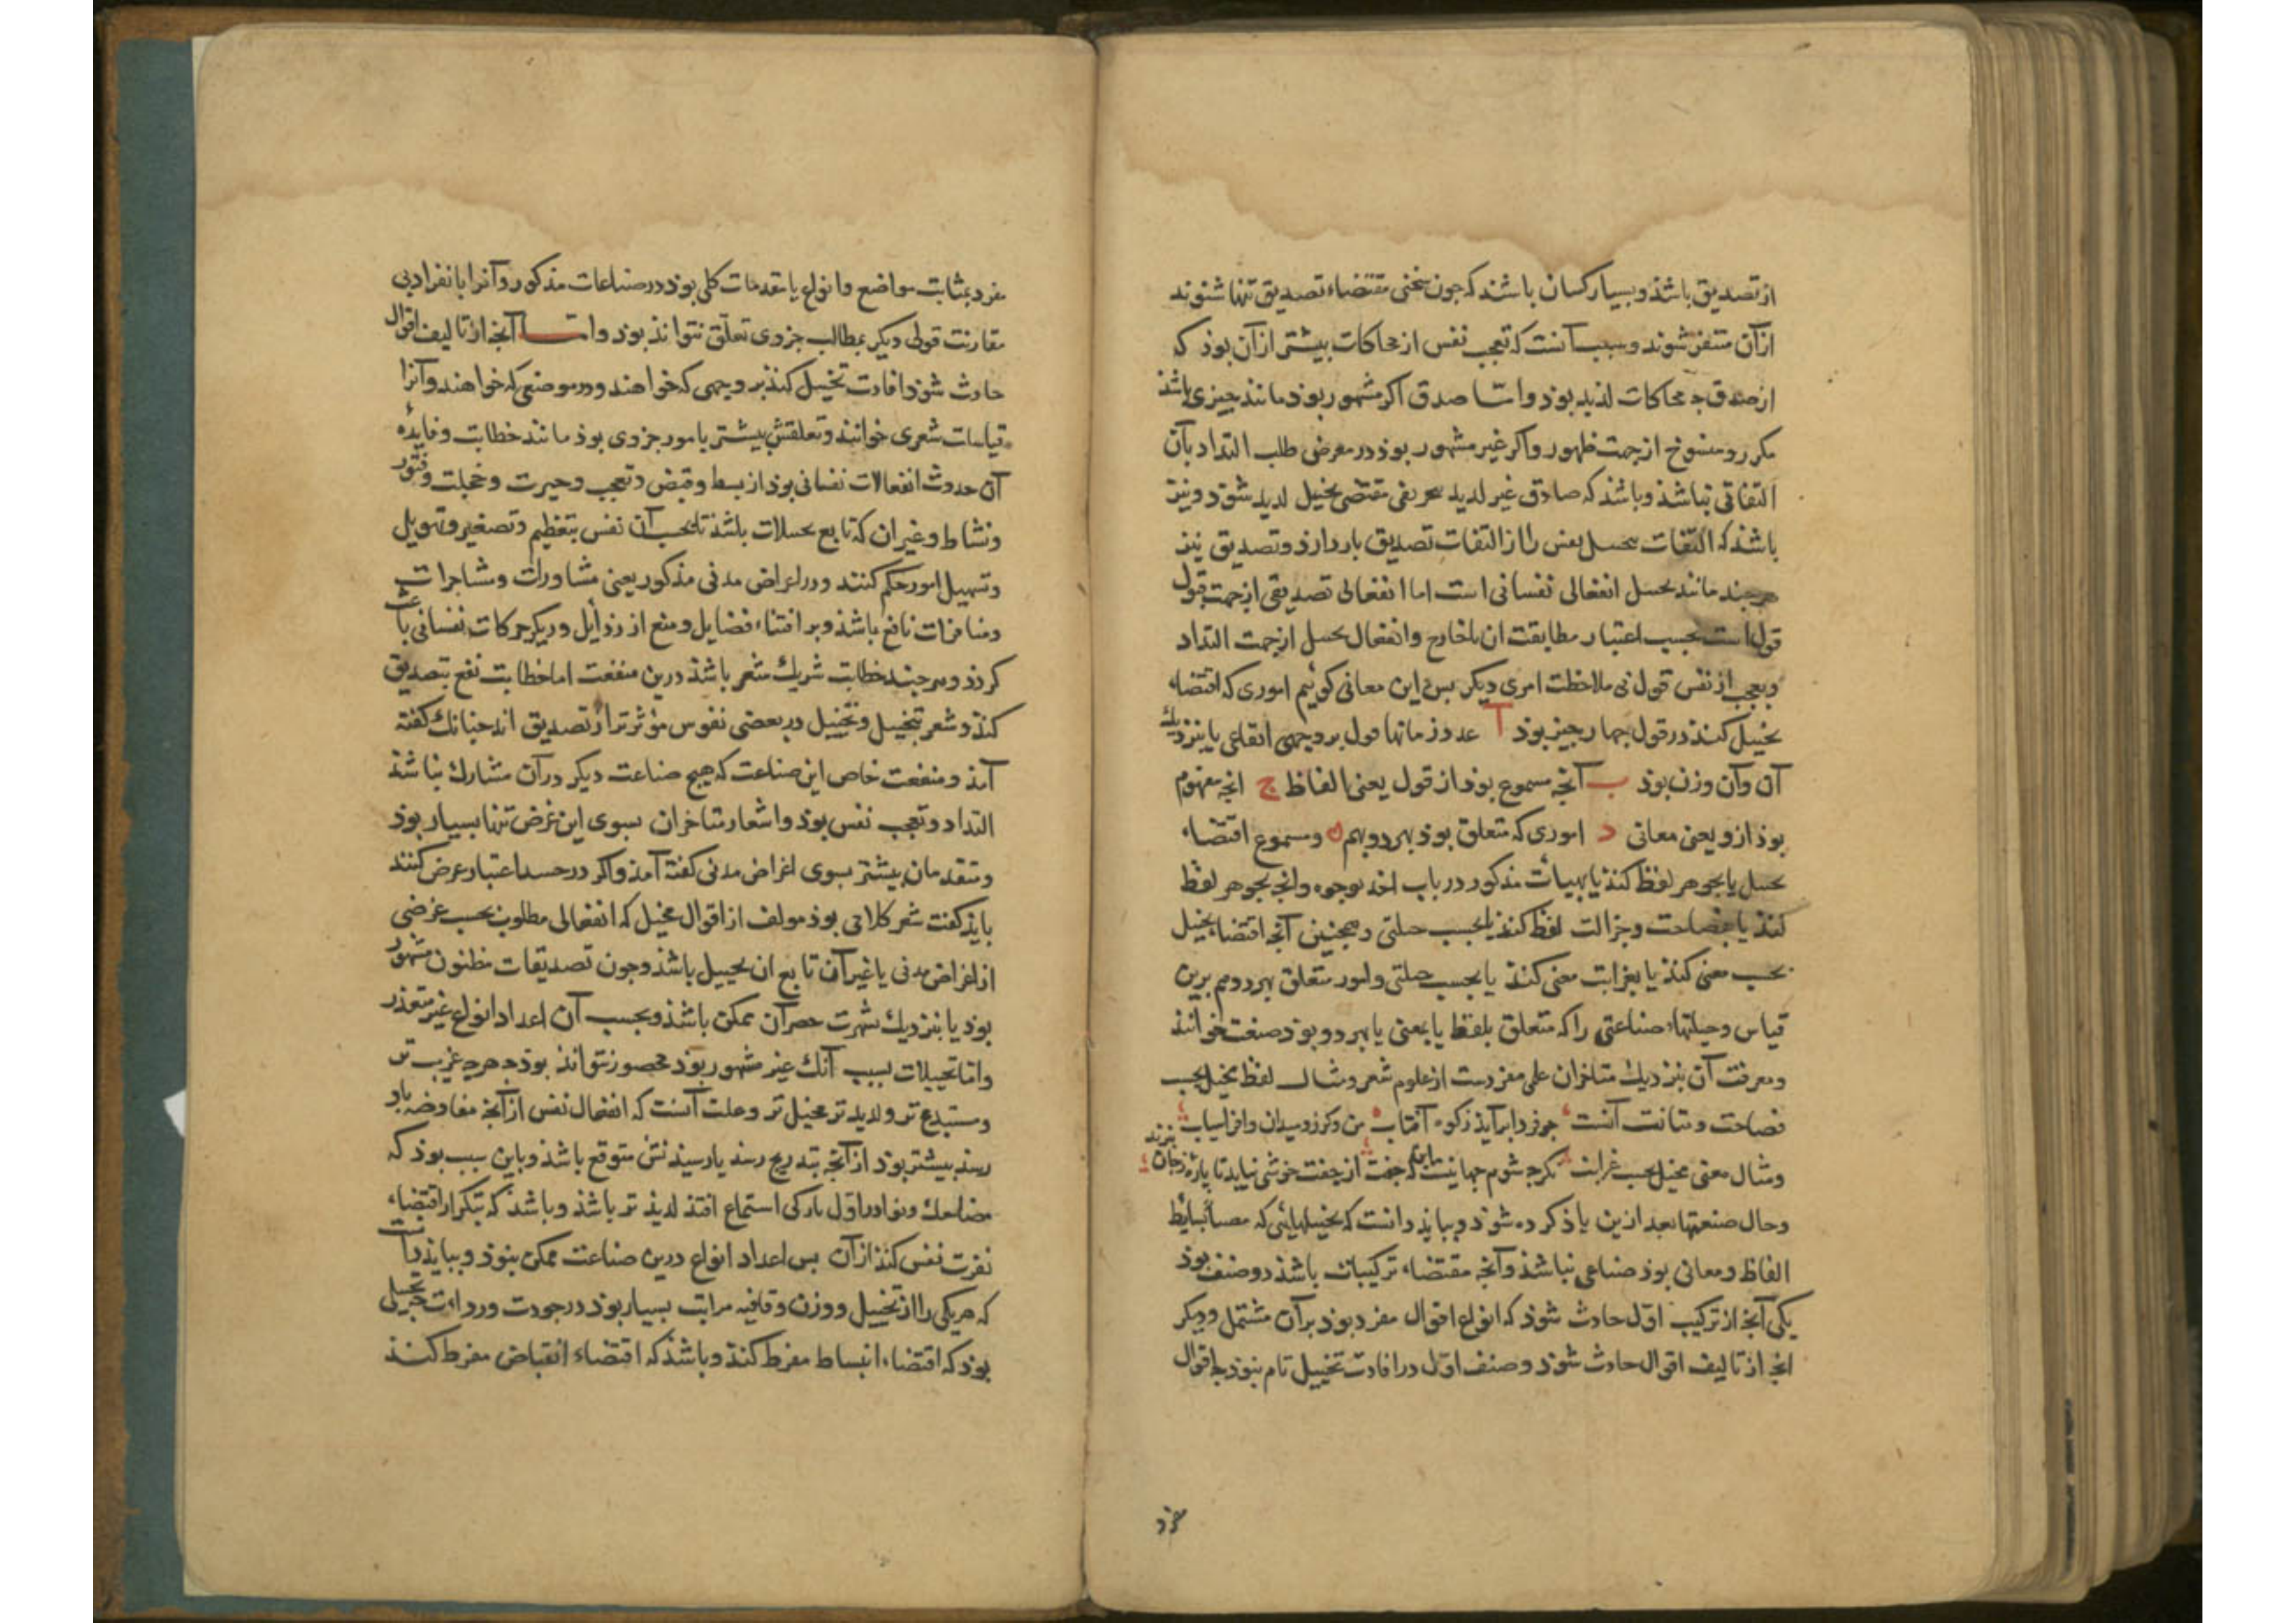 از تصدیق باشذ و بسیار کسان باشند که جون سخنی مقتضاء تصدیق تنها شنوند
از آن متنفر شوند و سبب آنست که تعجب نفس از محاکات بیشتر از آن بوذ که
از صدق جه محاکات لذیذ بوذ و اما صدق اکر مشهور بوذ مانند جیزی باشذ
مکرر و منسوخ از جهت ظهور و اکر غیر مشهور بوذ در معرض طلب التداد بآن
التفاتی نباشذ و باشذ که صادق غیر لدید بتحریفی مقتضی تخیل لدید شوذ و نیز
باشذ که التفات بتخییل نفس را از التفات تصدیق باز دارذ و تصدیق نیز
هرجند مانند تخییل انفعالی نفسانی است اما انفعالی تصدیقی از جهت قبول
قول است بحسب اعتبار مطابقت ان باخارج و انفعال تخییل از جهت التداد
و تعجب از نفس قول بی ملاحظت امری دیکر بس این معانی کوئیم اموری که اقتضاء
تخییل کنند در قول جهار جیز بوذ آ عدد زمانها قول بر وجهی ایقاعی یا نزدیک
آن و آن وزن بوذ ب آنجه مسموع بوذ از قول یعنی الفاظ ج انجه مفهوم
بوذ ازو یعنی معانی د اموری که متعلق بوذ بهر دو بهم و مسموع اقتضاء
تخییل یا بجوهر لفظ کنذ یا بهیأت مذکور در باب اخذ بوجوه وانج بجوهر لفظ
کنذ یا بفصاحت و جزالت لفظ کنذ یا بحسب حیلتی و همجنین آنجه اقتضاء تخییل
بحسب معنی کنذ یا بغرابت معنی کنذ یا بحسب حیلتی و امور متعلق بهر دو هم برین
قیاس و حیلتهاء صناعتی را که متعلق بلفظ یا بمعنی یا بهر دو بوذ صنعت خوانند
و معرفت آن بنزدیک متاخران علمی مفردست از علوم شعر و مثال لفظ مخیل بحسب
فصاحت و متانت آنست جو فردا برآید ز کوه آفتاب من و کرز و میدان و افراسیاب
و مثال معنی مخیل بحسب غرابت کرجه شوم جهانیست که جفت از جفت خوشی نیابد تا پاره زجان بزند
و حال صنعتها بعد ازین یاذ کرده شوذ و بباید دانست که تخییلهایی که بسایط
الفاظ و معانی بوذ صناعی نباشذ و آنجه مقتضاء ترکیبات باشذ دو صنف بوذ
یکی آنجه از ترکیب اول حادث شوذ که انواع اقوال مفرد بوذ برآن مشتمل و دیکر
انجه از تالیف اقوال حادث شوذ و صنف اول در افادت تخییل تام نبوذ جه اقوال
مفرد
مفرد بمثابت مواضع و انواع یا مقدمات کلی بوذ در صناعات مذکور و آنرا بانفراد بی
مقارنت قولی دیکر بمطالب جزوی تعلق نتواند بوذ و اما آنجه از تالیف اقوال
حادث شوذ افادت تخییل کنذ بر وجهی که خواهند و در موضعی که خواهند و آنرا
قیاسات شعری خوانند و تعلقش بیشتر بامور جزوی بوذ مانند خطابت و فایدهٔ
آن حدوث انفعالات نفسانی بوذ از بسط و قبض و تعجب و حیرت و خجلت و فتور
و نشاط و غیر ان که تابع تخییلات باشذ تا بحسب آن نفس بتعظیم و تصغیر و تهویل
و تسهیل امور حکم کنند و در اعراض مدنی مذکور یعنی مشاورات و مشاجرات
و منافرات نافع باشذ و بر اقتناء فضایل و منع از رذایل و دیکر حرکات نفسانی باعث
کردذ و هرجند خطابت شریک شعر باشذ درین منفعت اما خطابت نفع بتصدیق
کنذ و شعر بتخییل و تخییل در بعضی نفوس مؤثرتر از تصدیق اند جنانک کفته
آمذ و منفعت خاص این صناعت که هیج صناعت دیکر در آن مشارک نباشذ
التداد و تعجب نفس بوذ و اشعار متاخران بسوی این غرض تنها بسیار بوذ
و متقدمان بیشتر بسوی اغراض مدنی کفته آمذ و اکر در حد اعتبار عرض کنند
باید کفت شعر کلامی بوذ مولف از اقوال مخیل که انفعالی مطلوب بحسب غرضی
از اغراض مدنی یا غیر آن تابع ان تخییل باشذ و جون تصدیقات مظنون مشهور
بوذ یا بنزدیک شهرت حصر آن ممکن باشذ و بحسب آن اعداد انواع غیر متعذر
و اما تخییلات بسبب آنک غیر مشهور بوذ محصور نتواند بوذ جه هرجه غریب تر
و مستبدع تر و لدید تر مخیل تر و علت آنست که انفعال نفس از آنجه مفاوضه باو
رسد بیشتر بوذ از آنجه بتدریج رسد یا رسیدنش متوقع باشذ و باین سبب بوذ که
مضاحک و نوادر اول بار کی استماع افتذ لدیذ تر باشذ و باشذ که تکرار اقتضاء
نفرت نفس کنذ از آن بس اعداد انواع درین صناعت ممکن نبوذ و بباید دانست
که هر یکی را از تخییل و وزن و قافیه مراتب بسیار بوذ در جودت و رداءت تخییلی
بوذ که اقتضاء انبساط مفرط کنذ و باشذ که اقتضاء انقباض مفرط کنذ